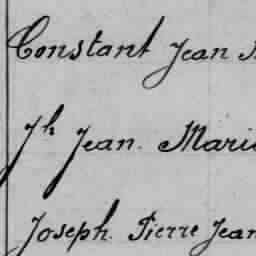 Constant Jean
Jh Jean. Marie
Joseph. Pierre Jean